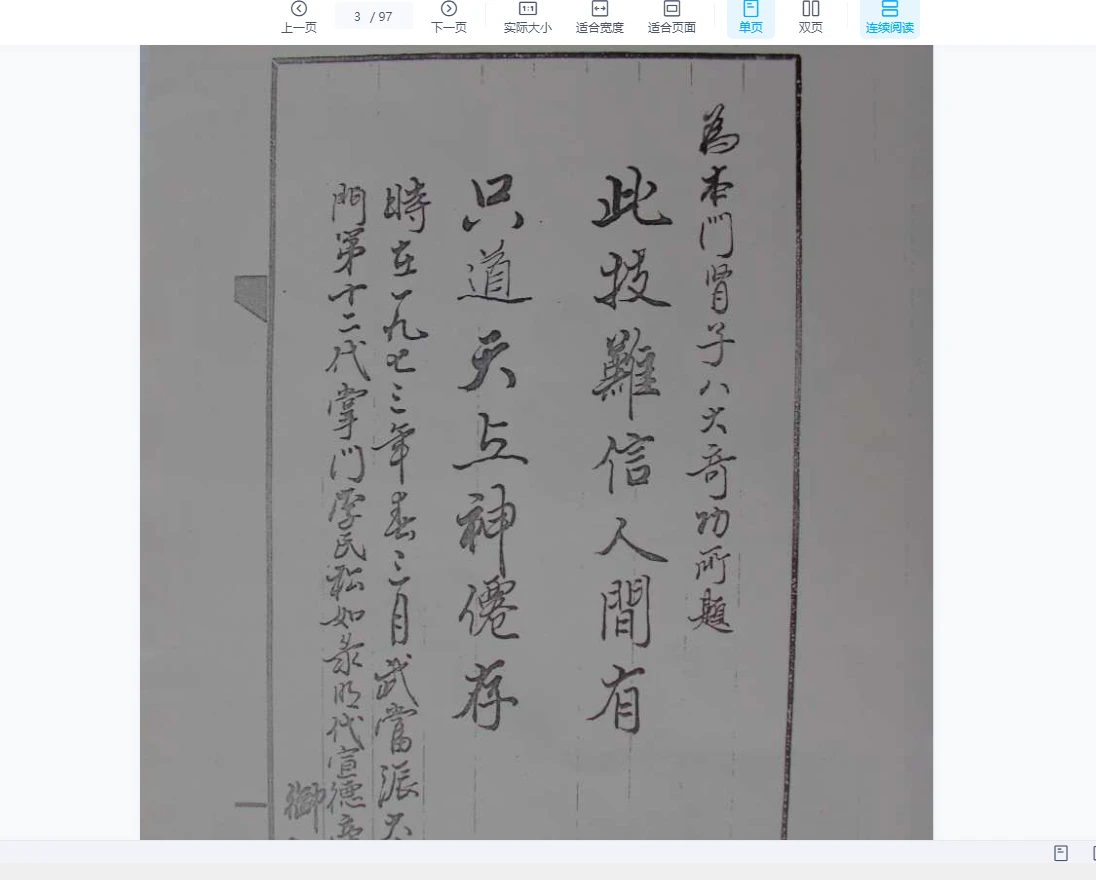 上一页
3 / 97
下一页
1:1
实际大小
适合宽度
适合页面
单页
双页
连续阅读
為本門肾子八大奇功所題
此技難信人間有
只道天上神僊存
時在一九七三年春三月武當派
門第十二代掌門李民松如录明代宣德
御